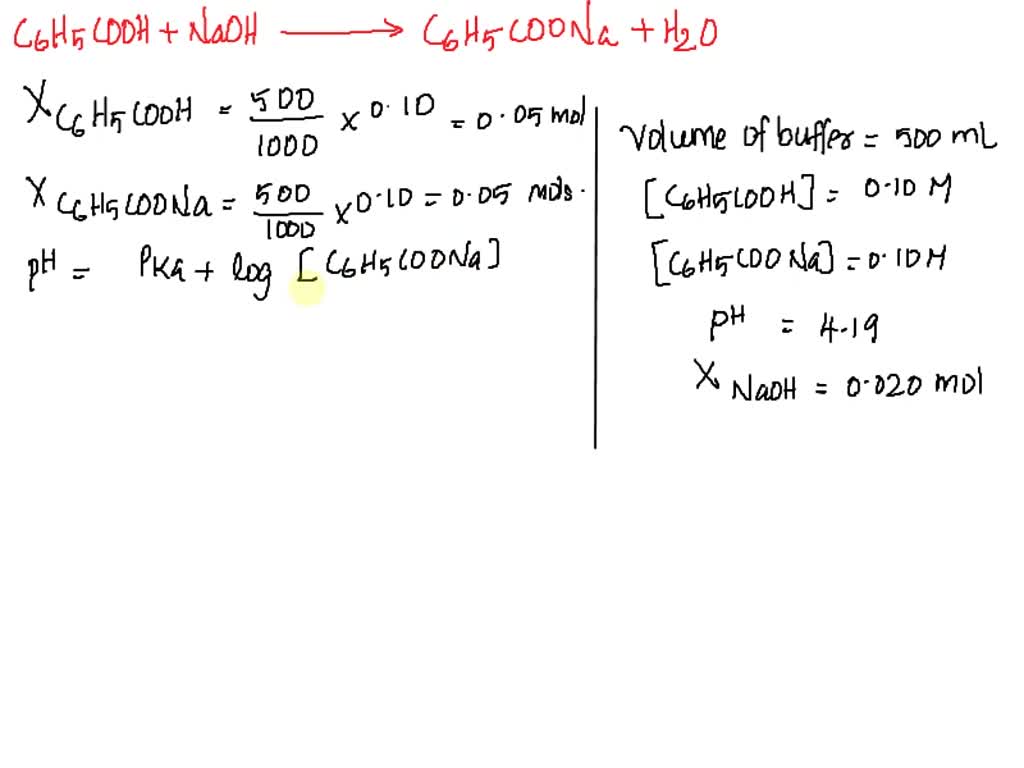 C6H5COOH + NaOH ⟶ C6H5COONa + H2O
X C6H5COOH = 500/1000 x 0.10 = 0.05 mol
X C6H5COONa = 500/1000 x 0.10 = 0.05 mols.
pH = PKa + log [C6H5COONa]
Volume of buffer = 500 mL
[C6H5COOH] = 0.10 M
[C6H5COONa] = 0.10M
PH = 4.19
X NaOH = 0.020 mol